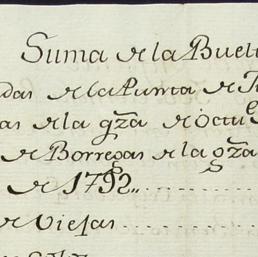 Suma de la Buel
das de la Punta de
as de la gza de Octu
de Borregas de la gza
de 1792
de Viejas